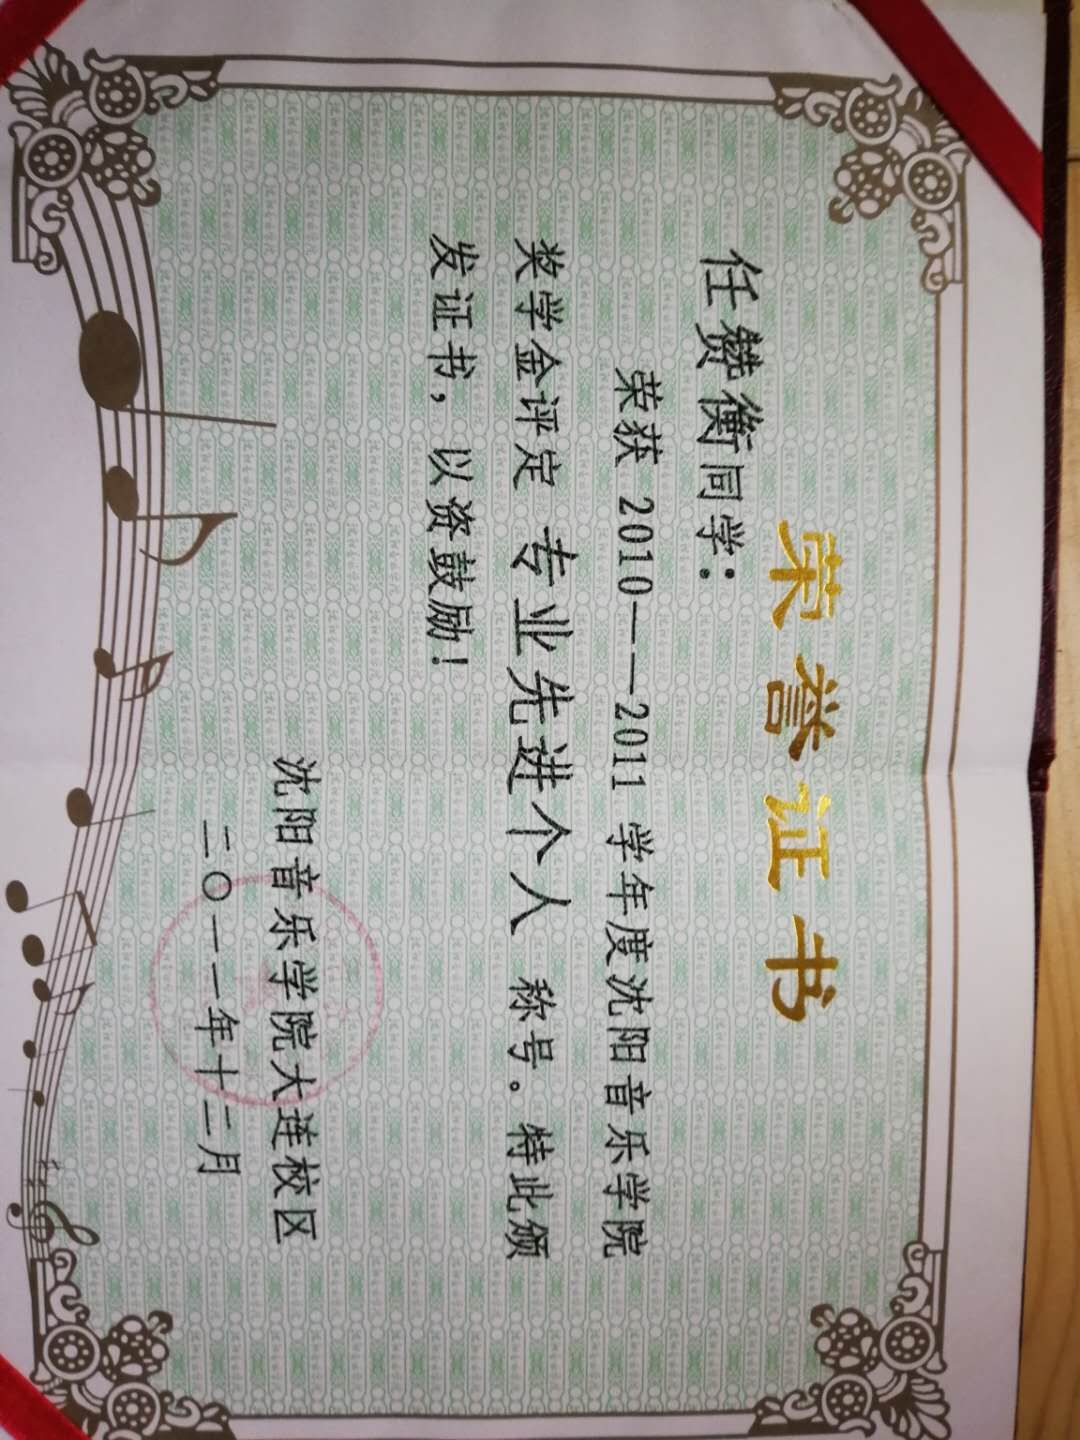 荣誉证书
任赞衡同学：
荣获 2010——2011 学年度沈阳音乐学院
奖学金评定 专业先进个人 称号。特此颁
发证书，以资鼓励！
沈阳音乐学院大连校区
二〇一一年十二月